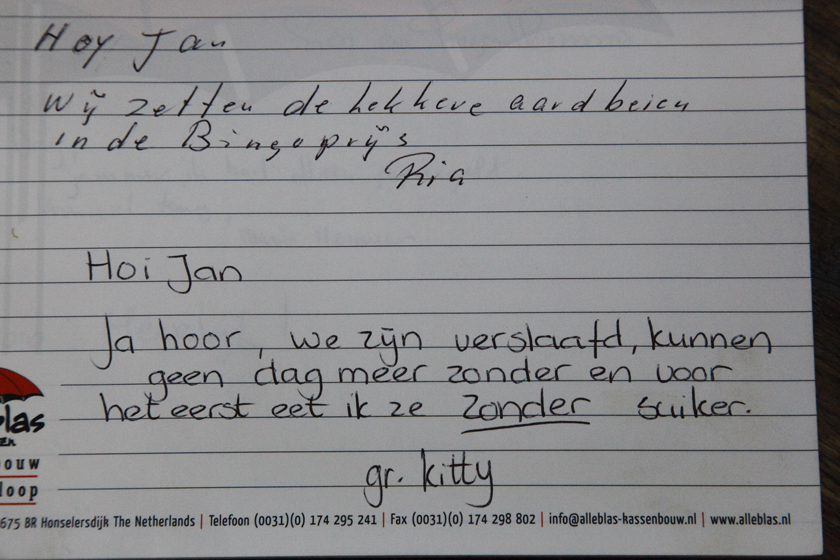 Hoy Jan
Wij zetten de lekkere aardbeien
in de Bingoprijs
Ria
Hoi Jan
Ja hoor, we zijn verslaafd, kunnen
geen dag meer zonder en voor
het eerst eet ik ze zonder suiker.
gr. kitty
blas
en
ouw
loop
675 BR Honselersdijk The Netherlands | Telefoon (0031)(0) 174 295 241 | Fax (0031)(0) 174 298 802 | info@alleblas-kassenbouw.nl | www.alleblas.nl